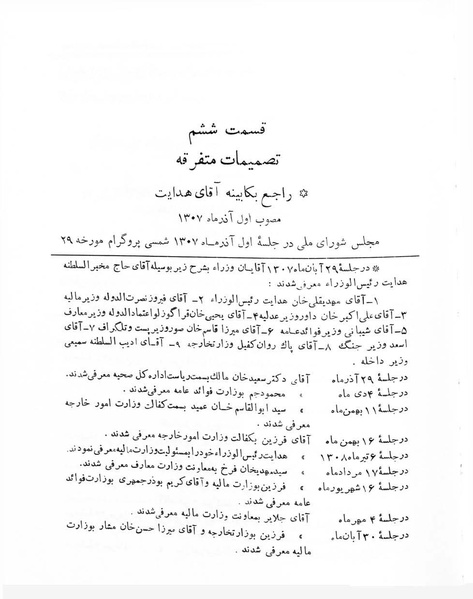 قسمت ششم
تصمیمات متفرقه
* راجع بکابینه آقای هدایت
مصوب اول آذرماه ۱۳۰۷
مجلس شورای ملی در جلسهٔ اول آذرماه ۱۳۰۷ شمسی پروگرام مورخه ۲۹
* درجلسهٔ ۲۹ آبان‌ماه ۱۳۰۷ آقایان وزراء بشرح زیر بوسیله آقای حاج مخبر السلطنه
هدایت رئیس‌الوزراء معرفی شدند :
۱- آقای مهدیقلی‌خان هدایت رئیس‌الوزراء ۲- آقای فیروز نصرت‌الدوله وزیر مالیه
۳- آقای علی اکبر خان داور وزیر عدلیه ۴- آقای یحیی‌خان قراگوزلو اعتماد الدوله وزیر معارف
۵- آقای شیبانی وزیر فوائد عامه ۶- آقای میرزا قاسم خان صور وزیر پست و تلگراف ۷- آقای
اسعد وزیر جنگ ۸- آقای پاک روان کفیل وزارتخارجه ۹- آقای ادیب السلطنه سمیعی
وزیر داخله .
درجلسهٔ ۲۹ آذرماه آقای دکتر سعیدخان مالک بسمت ریاست اداره کل صحیه معرفی شدند.
درجلسهٔ ۴ دی ماه » محمود جم بوزارت فوائد عامه معرفی شدند .
درجلسهٔ ۱۱ بهمن‌ماه » سید ابوالقاسم خان عمید بسمت کفالت وزارت امور خارجه
معرفی شدند .
درجلسهٔ ۱۶ بهمن ماه آقای فرزین بکفالت وزارت امور خارجه معرفی شدند .
درجلسهٔ ۶ تیرماه ۱۳۰۸ » هدایت رئیس‌الوزراء خود را بمسئولیت وزارت مالیه معرفی نمودند.
درجلسهٔ ۱۷ مردادماه » سید مهدیخان فرخ بمعاونت وزارت معارف معرفی شدند.
درجلسهٔ ۱۶ شهریورماه » فرزین بوزارت مالیه و آقای کریم بوذرجمهری بوزارت فوائد
عامه معرفی شدند .
درجلسهٔ ۴ مهرماه آقای جلایر بمعاونت وزارت مالیه معرفی شدند .
درجلسهٔ ۳۰ آبان‌ماه » فرزین بوزارتخارجه و آقای میرزا حسن خان مشار بوزارت
مالیه معرفی شدند .